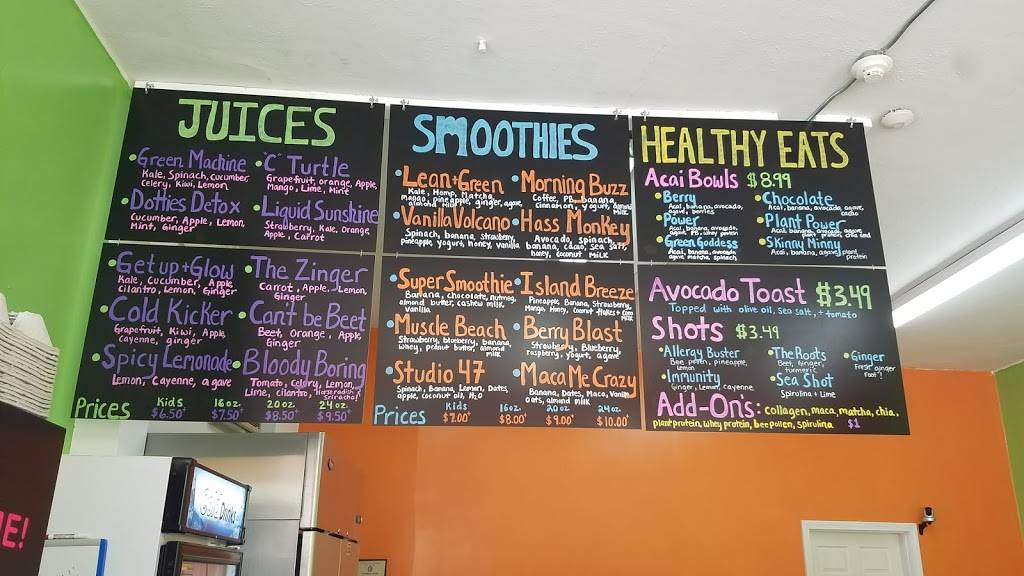 JUICES
Green Machine
Kale, Spinach, cucumber,
celery, Kiwi, Lemon
C' Turtle
Grapefruit, orange, Apple
Mango, Lime, Mint
Dotties Detox
Cucumber, Apple, Lemon,
Mint, Ginger
Liquid Sunshine
Strawberry, Kale, Orange,
Apple, Carrot
Get up + Glow
Kale, Cucumber, Apple
cilantro, Lemon, Ginger
The Zinger
Carrot, Apple, Lemon,
Ginger
Cold Kicker
Grapefruit, Kiwi, Apple
cayenne, ginger
Can't be Beet
Beet, Orange, Apple,
Ginger
Spicy Lemonade
Lemon, Cayenne, agave
Bloody Boring
Tomato, celery, Lemon,
Lime, cilantro,
Sriracha!
Prices
Kids 16oz. 20oz 24oz
$6.50 $7.50 $8.50 $9.50
SMOOTHIES
Lean + Green
Kale, Hemp, Matcha,
mango, pineapple, ginger, agave,
almond milk
Morning Buzz
Coffee, PB, banana,
Cinnamon, yogurt, almond
milk
Vanilla Volcano
Spinach, banana, strawberry,
pineapple, yogurt, honey, vanilla
Hass Monkey
Avocado, spinach,
banana, cacao, sea salt,
honey, coconut milk
Super Smoothie
Banana, chocolate, nutmeg,
almond butter, cashew milk,
vanilla
Island Breeze
Pineapple, Banana, Strawberry,
Mango, Honey, Coconut flakes + Coco
milk
Muscle Beach
Strawberry, blueberry, banana,
whey, peanut butter, almond
milk
Berry Blast
Strawberry, Blueberry,
raspberry, yogurt, agave
Studio 47
Spinach, Banana, Lemon, Dates,
apple, coconut oil, H2O
Maca Me Crazy
Banana, Dates, Maca, Vanilla
oats, almond milk
Prices
Kids 16oz 20oz 24oz
$7.00 $8.00 $9.00 $10.00
HEALTHY EATS
Acai Bowls $8.99
Berry
Acai, banana, avocado,
agave, berries
Chocolate
Acai, banana, avocado, agave,
cacao
Power
Acai, banana, avocado,
agave, PB, whey protein
Plant Power
Acai, banana, avocado, agave
plant protein, chia seed
Green Goddess
Acai, banana, avocado
agave, matcha, spinach,
Skinny Minny
Acai, banana, agave, plant
protein
Avocado Toast $3.49
Topped with olive oil, sea salt, + tomato
Shots $3.49
Allergy Buster
Bee pollen, pineapple,
lemon
The Roots
Beet, Ginger,
turmeric
Ginger
Fresh ginger
Immunity
Ginger, Lemon, cayenne
Sea Shot
Spirulina + Lime
Add-On's: collagen, maca, matcha, chia,
plant protein, whey protein, bee pollen, spirulina $1
Drinks
E!